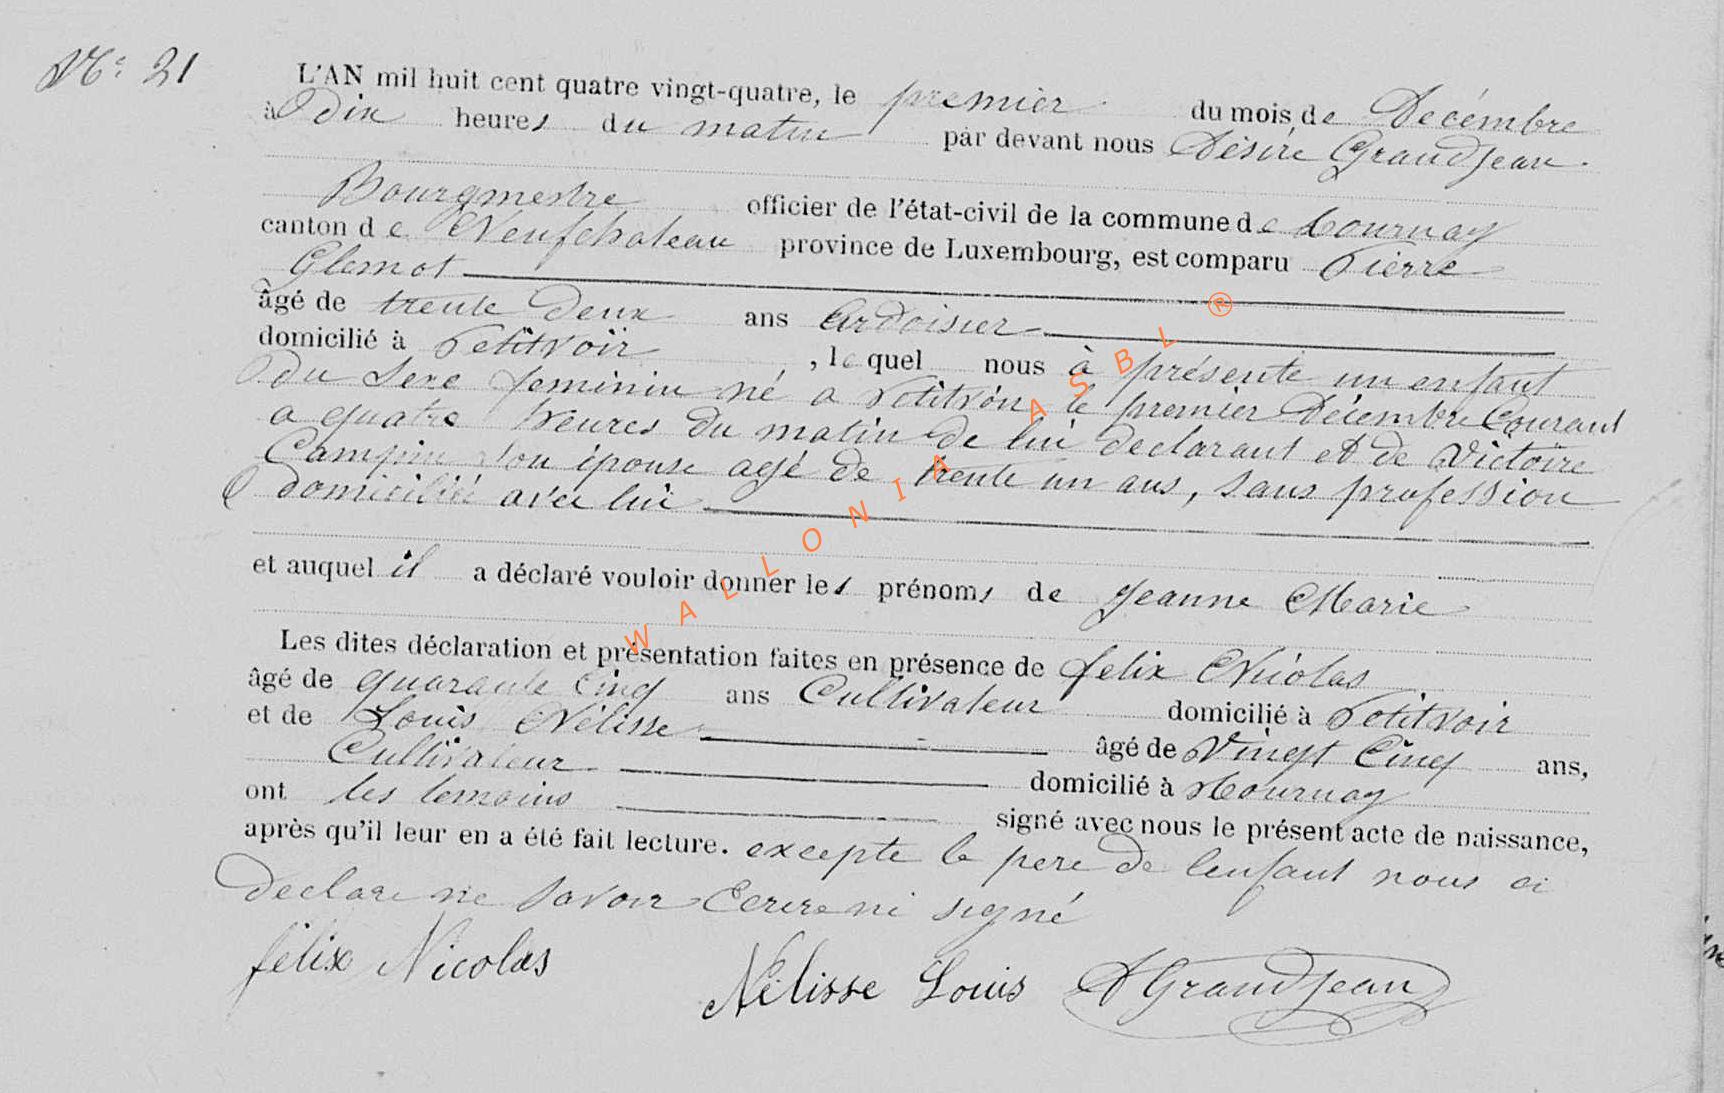 N° 21
L'AN mil huit cent quatre vingt-quatre, le premier du mois de Decémbre
à Dix heures du matin par devant nous Désiré Grandjean
Bourgmestre officier de l'état-civil de la commune de Tournay
canton de Neufchateau province de Luxembourg, est comparu Pierre
Glemot
âgé de trente Deux ans Ardoisier
domicilié à Petitvoir, lequel nous à présenté un enfant
Du Sexe feminin né a Petitvoir le premier Décembre Courant
a quatre heures Du matin de lui declarant et de Victoire
son épouse agé de trente un ans, Sans profession
domiciliée avec lui
et auquel il a déclaré vouloir donner les prénoms de Jeanne Marie
Les dites déclaration et présentation faites en présence de felix Nicolas
âgé de quarante Cinq ans Cultivateur domicilié à Petitvoir
et de Louis Nélisse âgé de Vingt Cinq ans,
Cultivateur domicilié à Tournay
ont les temoins signé avec nous le présent acte de naissance,
après qu'il leur en a été fait lecture. excepte le pere De lenfant nous ai
Declare ne Savoir Ecrire ni signé
félix Nicolas
Nélisse Louis D Grandjean
WALLONIA ASBL ®